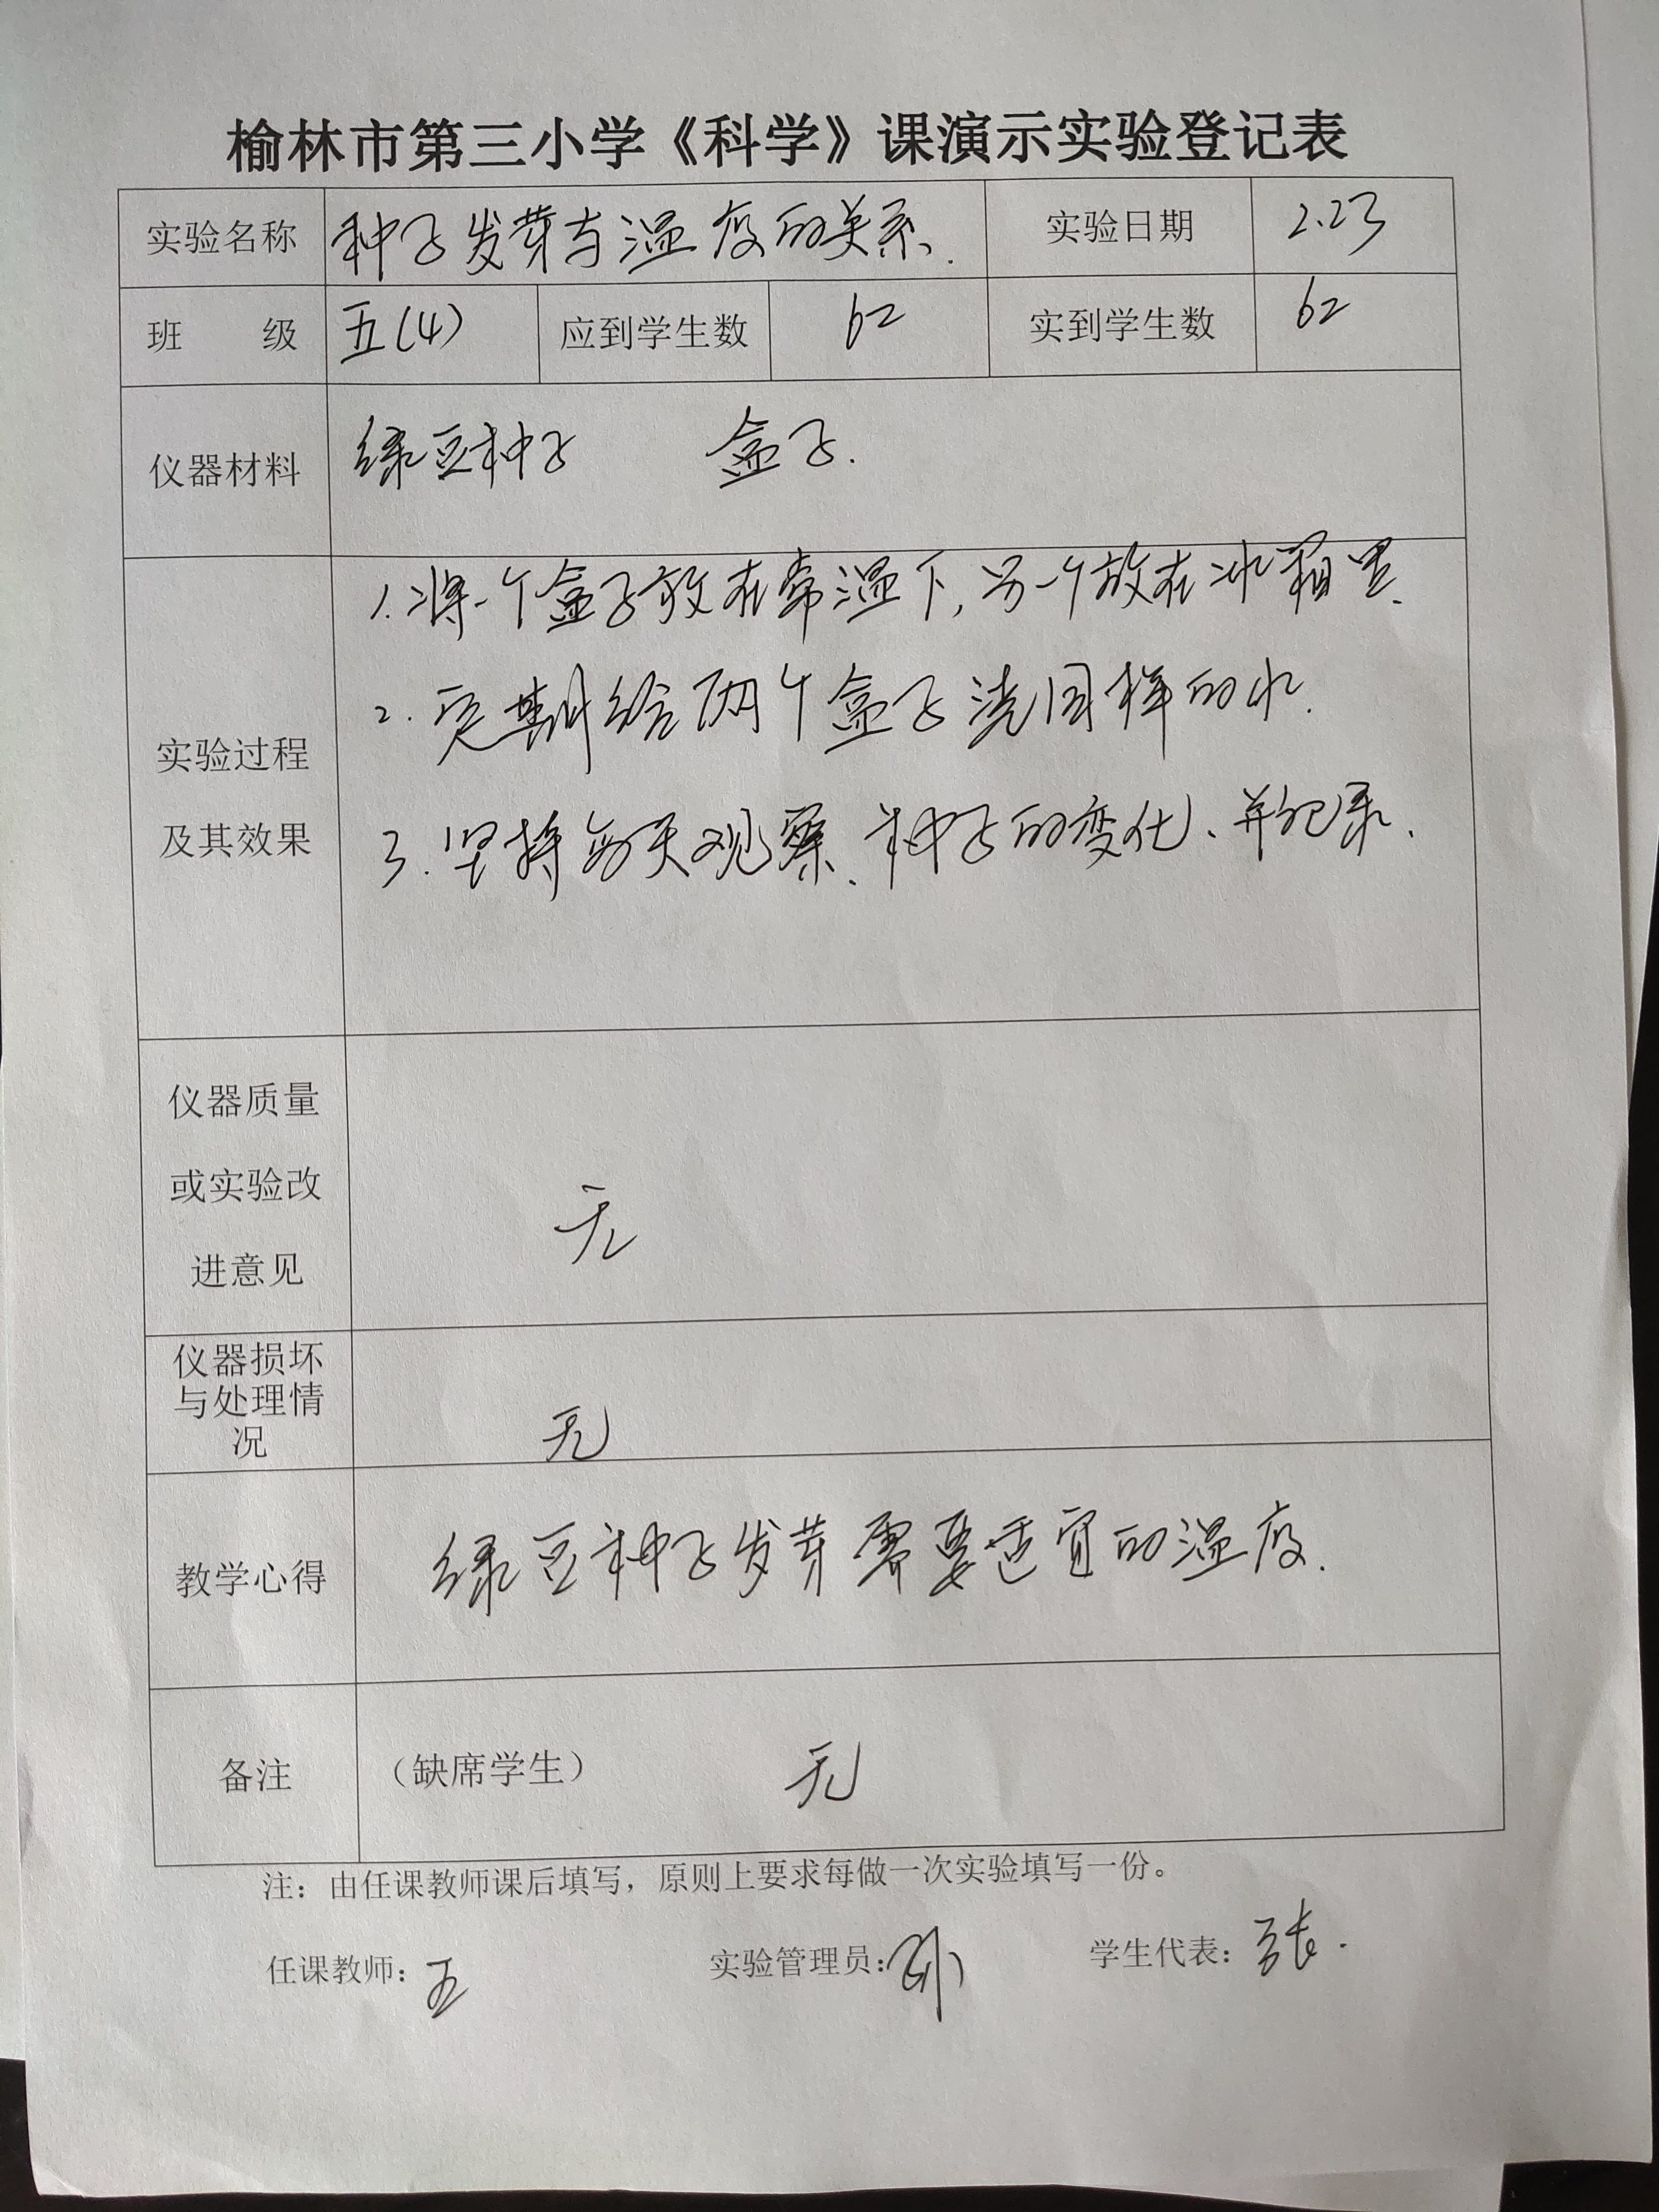 榆林市第三小学《科学》课演示实验登记表
实验名称 种子发芽与温度的关系. 实验日期 2.23
班 级 五(4) 应到学生数 62 实到学生数 62
仪器材料 绿豆种子 盒子.
1.将一个盒子放在常温下,另一个放在冰箱里.
2.定期给两个盒子浇同样的水.
实验过程
及其效果
3.坚持每天观察、种子的变化、并记录.
仪器质量
或实验改
进意见
无
仪器损坏
与处理情
况
无
教学心得 绿豆种子发芽需要适宜的温度.
备注 (缺席学生) 无
注:由任课教师课后填写,原则上要求每做一次实验填写一份。
任课教师: 王 实验管理员: 孙 学生代表: 张.